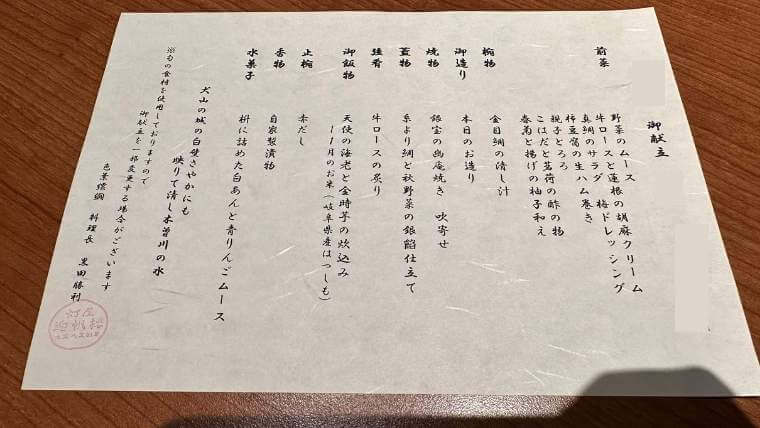 御献立
前菜
野菜のムース
牛ロースと蓮根の胡麻クリーム
真鯛のサラダ 梅ドレッシング
柿豆富の生ハム巻き
親子とろろ
こはだと茗荷の酢の物
春菊と揚げの柚子和え
椀物
金目鯛の清し汁
御造り
本日のお造り
焼物
銀宝の幽庵焼き 吹寄せ
蓋物
糸より鯛と秋野菜の銀餡仕立て
強肴
牛ロースの炙り
御飯物
天使の海老と金時芋の炊込み
ー11月のお米(岐阜県産はつしも)
止椀
赤だし
香物
自家製漬物
水菓子
枡に詰めた白あんと青りんごムース
犬山の城の白壁さやかにも
映りて清し木曽川の水
※旬の食材を使用しておりますので
御献立を一部変更する場合がございます
料理長 黒田勝利
灯屋
迎帆楼